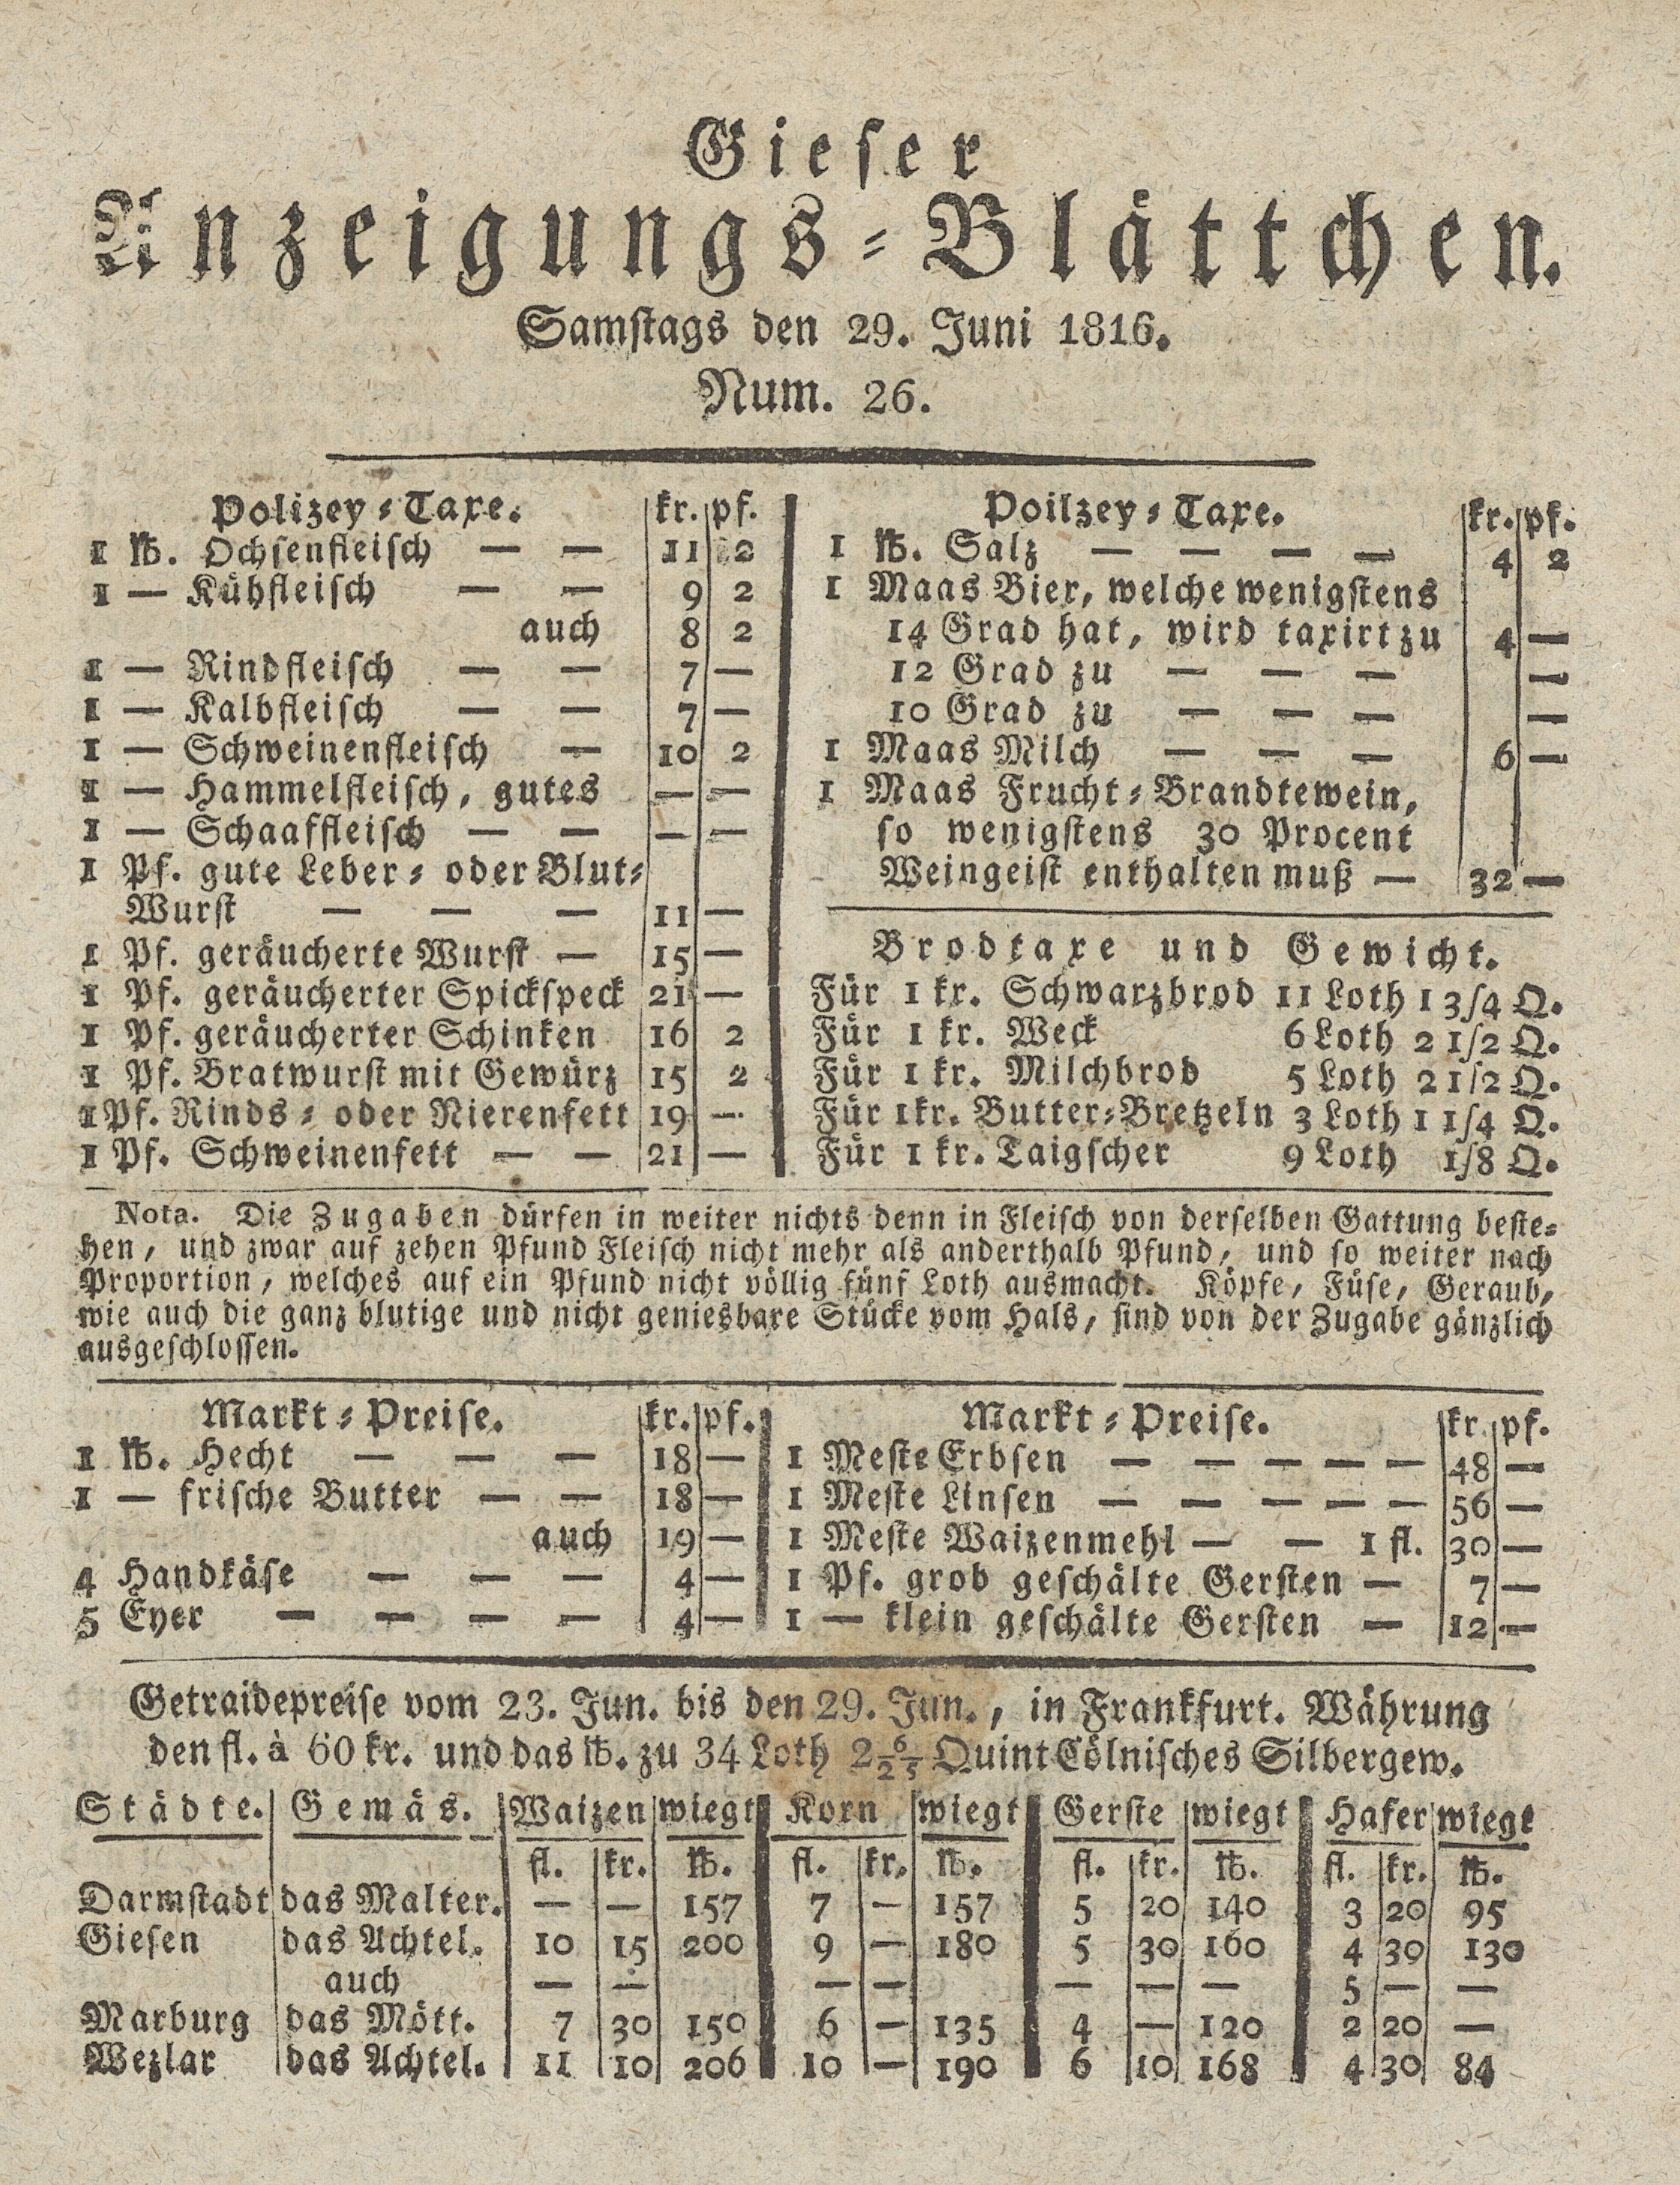 Gieser
Anzeigungs-Blättchen.
Samstags den 29. Juni 1816.
Num. 26.
Polizey-Taxe. kr. pf.
1 ℔. Ochsenfleisch — — 11 2
1 — Kühfleisch — — 9 2
auch 8 2
1 — Rindfleisch — — 7 —
1 — Kalbfleisch — — 7 —
1 — Schweinenfleisch — 10 2
1 — Hammelfleisch, gutes — —
1 — Schaaffleisch — — — —
1 Pf. gute Leber- oder Blut-
Wurst — — — 11 —
1 Pf. geräucherte Wurst — 15 —
1 Pf. geräucherter Spickspeck 21 —
1 Pf. geräucherter Schinken 16 2
1 Pf. Bratwurst mit Gewürz 15 2
1 Pf. Rinds- oder Nierenfett 19 —
1 Pf. Schweinenfett — — 21 —
Poilzey-Taxe. kr. pf.
1 ℔. Salz — — — — 4 2
1 Maas Bier, welche wenigstens
14 Grad hat, wird taxirt zu 4 —
12 Grad zu — — — —
10 Grad zu — — — —
1 Maas Milch — — — 6 —
1 Maas Frucht-Brandtewein,
so wenigstens 30 Procent
Weingeist enthalten muß — 32 —
Brodtaxe und Gewicht.
Für 1 kr. Schwarzbrod 11 Loth 1 3/4 Q.
Für 1 kr. Weck 6 Loth 2 1/2 Q.
Für 1 kr. Milchbrod 5 Loth 2 1/2 Q.
Für 1 kr. Butter-Bretzeln 3 Loth 1 1/4 Q.
Für 1 kr. Taigscher 9 Loth 1/8 Q.
Nota. Die Zugaben dürfen in weiter nichts denn in Fleisch von derselben Gattung beste-
hen, und zwar auf zehen Pfund Fleisch nicht mehr als anderthalb Pfund, und so weiter nach
Proportion, welches auf ein Pfund nicht völlig fünf Loth ausmacht. Köpfe, Füse, Geraub,
wie auch die ganz blutige und nicht geniesbare Stücke vom Hals, sind von der Zugabe gänzlich
ausgeschlossen.
Markt-Preise. kr. pf.
1 ℔. Hecht — — — 18 —
1 — frische Butter — — 18 —
auch 19 —
4 Handkäse — — — 4 —
5 Eyer — — — — 4 —
Markt-Preise. kr. pf.
1 Meste Erbsen — — — — — 48 —
1 Meste Linsen — — — — — 56 —
1 Meste Waizenmehl — — 1 fl. 30 —
1 Pf. grob geschälte Gersten — 7 —
1 — klein geschälte Gersten — 12 —
Getraidepreise vom 23. Jun. bis den 29. Jun., in Frankfurt. Währung
den fl. à 60 kr. und das ℔. zu 34 Loth 2 6/25 Quint Cölnisches Silbergew.
Städte. Gemäs. Waizen wiegt Korn wiegt Gerste wiegt Hafer wiegt
fl. kr. ℔. fl. kr. ℔. fl. kr. ℔. fl. kr. ℔.
Darmstadt das Malter. — — 157 7 — 157 5 20 140 3 20 95
Giesen das Achtel. 10 15 200 9 — 180 5 30 160 4 30 130
auch — — — — — — — 5 — —
Marburg das Mött. 7 30 150 6 — 135 4 — 120 2 20 —
Wezlar das Achtel. 11 10 206 10 — 190 6 10 168 4 30 84